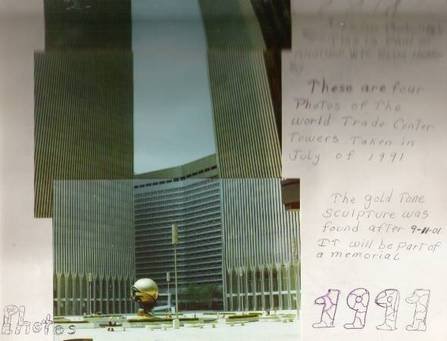 These are four
Photos of The
World Trade Center
Towers Taken in
July of 1991
The gold Tone
Sculpture was
found after 9-11-01
IT will be part of
a memorial
1991
Photos